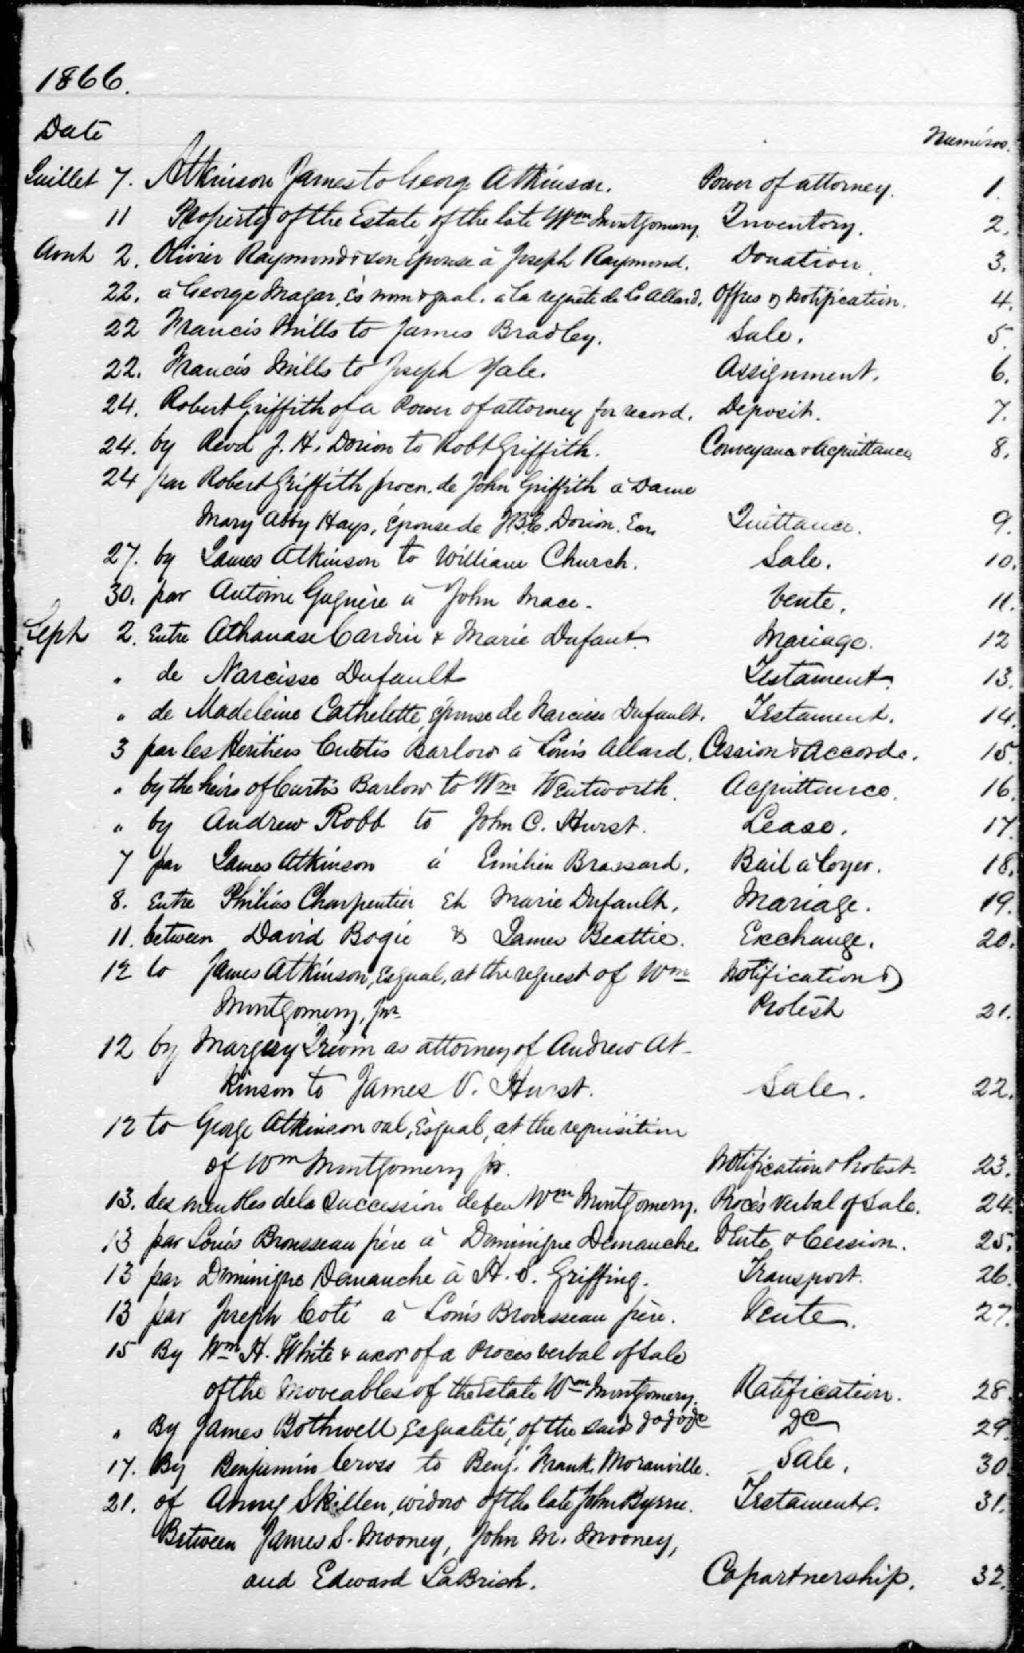 1866.
Date Numéros.
Juillet 7. Atkinson James to George Atkinson. Power of attorney. 1.
11 Property of the Estate of the late Wm Montgomery. Inventory. 2.
Août 2. Olivier Raymond & son épouse à Joseph Raymond. Donation. 3.
22. à George Magar, ès nom & qual. à la requête de Ls Allard. Offres & Notification. 4.
22 Francis Mills to James Bradley. Sale. 5.
22. Francis Mills to Joseph Yale. Assignment. 6.
24. Robert Griffith of a Power of attorney for record. Deposit. 7.
24. by Revd J. H. Dorion to Robt Griffith. Conveyance & Acquittance 8.
24 par Robert Griffith procr. de John Griffith à Dame
Mary Abby Hays, épouse de J.B.E. Dorion. Ecr. Quittance. 9.
27. by James Atkinson to William Church. Sale. 10.
30. par Antoine Gugnère à John Mace. Vente. 11.
Sept 2. Entre Athanase Cardin & Marie Dufault. Mariage. 12
" de Narcisse Dufault Testament. 13.
" de Madeleine Cathelette, épouse de Narcisse Dufault. Testament. 14.
3 par les Héritiers Curtis Barlow à Louis Allard. Cession & Accords. 15.
" by the heirs of Curtis Barlow to Wm Wentworth. Acquittance. 16.
" by Andrew Robb to John C. Hurst. Lease. 17
7 par James Atkinson à Emilien Brassard. Bail à loyer. 18.
8. Entre Philias Charpentier Et Marie Dufault. Mariage. 19.
11. between David Bogie & James Beattie. Exchange. 20.
12 to James Atkinson, Esqual, at the request of Wm Notification &
Montgomery, Jnr. Protest 21.
12 by Margery as attorney of Andrew At-
kinson to James V. Hurst. Sale. 22.
12 to George Atkinson & al, Esqual, at the requisition
of Wm Montgomery jr. Notification & Protest. 23.
13. des meubles de la succession de feu Wm Montgomery. Procès verbal of Sale. 24.
13 par Louis Brousseau père à Dominique Demanche. Vente & Cession. 25.
13 par Dominique Demanche à H. S. Griffing. Transport. 26.
13 par Joseph Coté à Louis Brousseau père. Vente. 27.
15 By Wm H. White & uxor of a Procès verbal of Sale
of the moveables of the Estate Wm Montgomery. Ratification. 28.
" By James Bothwell Esqualité, of the said do do do &c Do 29.
17. By Benjamin Cross to Benj. Frank. Moranville. Sale. 30
21. of Anny Skillen, widow of the late John Byrne. Testament. 31.
Between James S. Mooney, John M. Mooney,
and Edward LaBrish. Copartnership. 32.